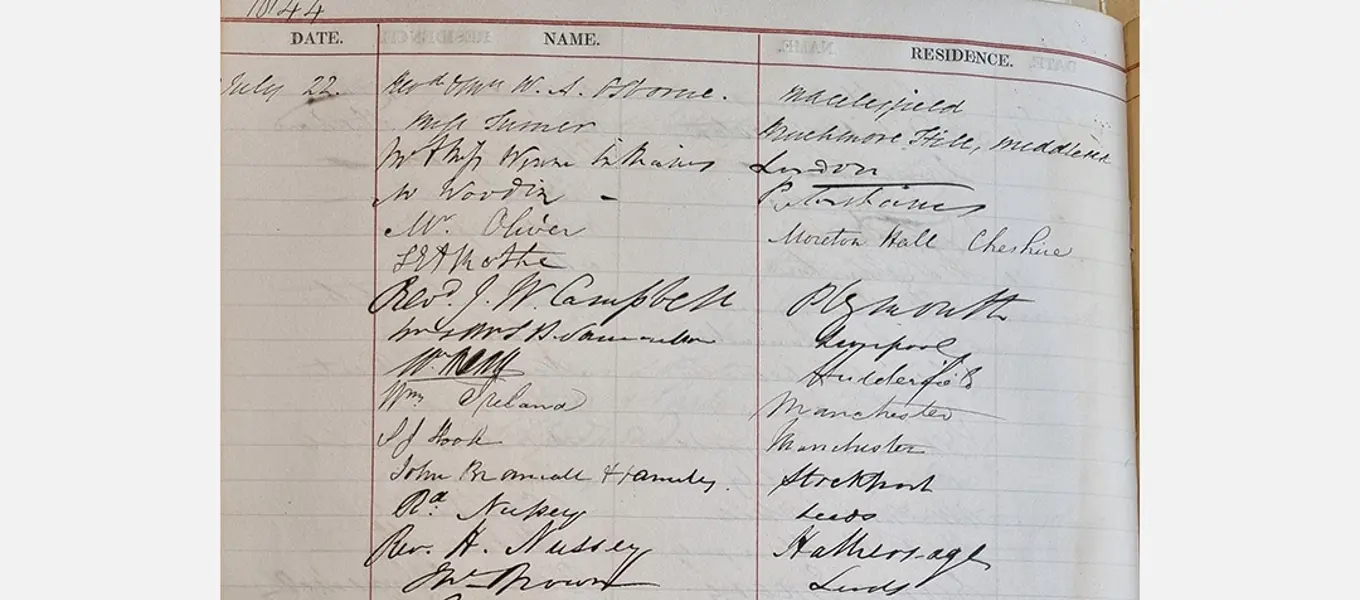 1844
DATE. NAME. RESIDENCE.
July 22. Revd & Mrs W. A. Osborne. Macclesfield
Miss Turner Muchmore Hill, Middlesex
Mr & Miss Winn London
W Woodin -
Mr. Oliver Moreton Hall Cheshire
Revd. J. W. Campbell Plymouth
Mr & Mrs B. Liverpool
Wm Huddersfield
Wm Ireland Manchester
S J Hook Manchester
John Bramall & Family. Stockport
Rd Nussey Leeds
Rev. H. Nussey Hathersage
Jno Brown Leeds